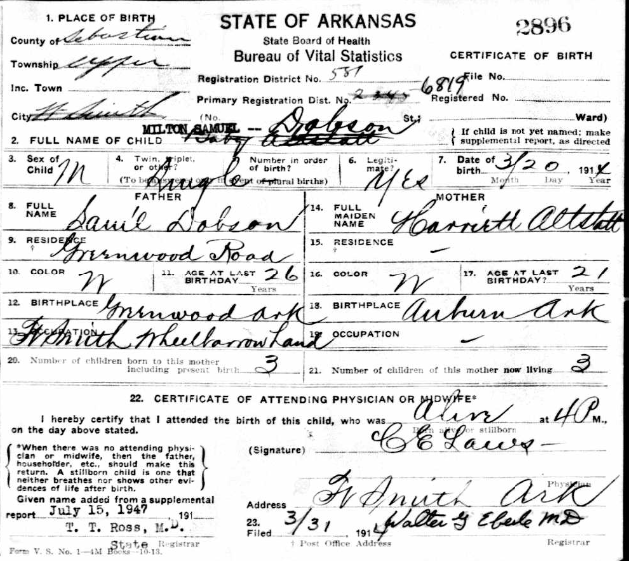 1. PLACE OF BIRTH
STATE OF ARKANSAS
2896
County of Sebastian
State Board of Health
Township Upper
Bureau of Vital Statistics
CERTIFICATE OF BIRTH
Inc. Town
Registration District No. 581
File No.
City Ft Smith
Primary Registration Dist. No.
6819 Registered No.
(No. St.; Ward)
MILTON SAMUEL -- Dobson
2. FULL NAME OF CHILD Baby Altstatt
{ If child is not yet named; make supplemental report, as directed
3. Sex of Child M
4. Twin, Triplet, or other? Single
Number in order of birth?
(To be answered only in event of plural births)
6. Legitimate? Yes
7. Date of birth 3/20 1914
Month Day Year
FATHER
MOTHER
8. FULL NAME Dobson
14. FULL MAIDEN NAME Harriett Altstatt
9. RESIDENCE Greenwood Road
15. RESIDENCE –
10. COLOR W
11. AGE AT LAST BIRTHDAY 26 Years
16. COLOR W
17. AGE AT LAST BIRTHDAY? 21 Years
12. BIRTHPLACE Greenwood Ark
18. BIRTHPLACE Auburn Ark
13. OCCUPATION Ft Smith Wheelbarrow Hand
19. OCCUPATION –
20. Number of children born to this mother including present birth 3
21. Number of children of this mother now living 3
22. CERTIFICATE OF ATTENDING PHYSICIAN OR MIDWIFE*
I hereby certify that I attended the birth of this child, who was Alive at 4 P M.,
on the day above stated.
Born alive or stillborn
*When there was no attending physician or midwife, then the father,
householder, etc., should make this
return. A stillborn child is one that
neither breathes nor shows other evidences of life after birth.
(Signature) C E Laws
Physician
Given name added from a supplemental
report July 15, 1947 191
Address Ft Smith Ark
T. T. Ross, M.D.
State Registrar
23. Filed 3/31 1914 Walter G Eberle MD
† Post Office Address Registrar
Form V. S. No. 1—4M Books—10-13.